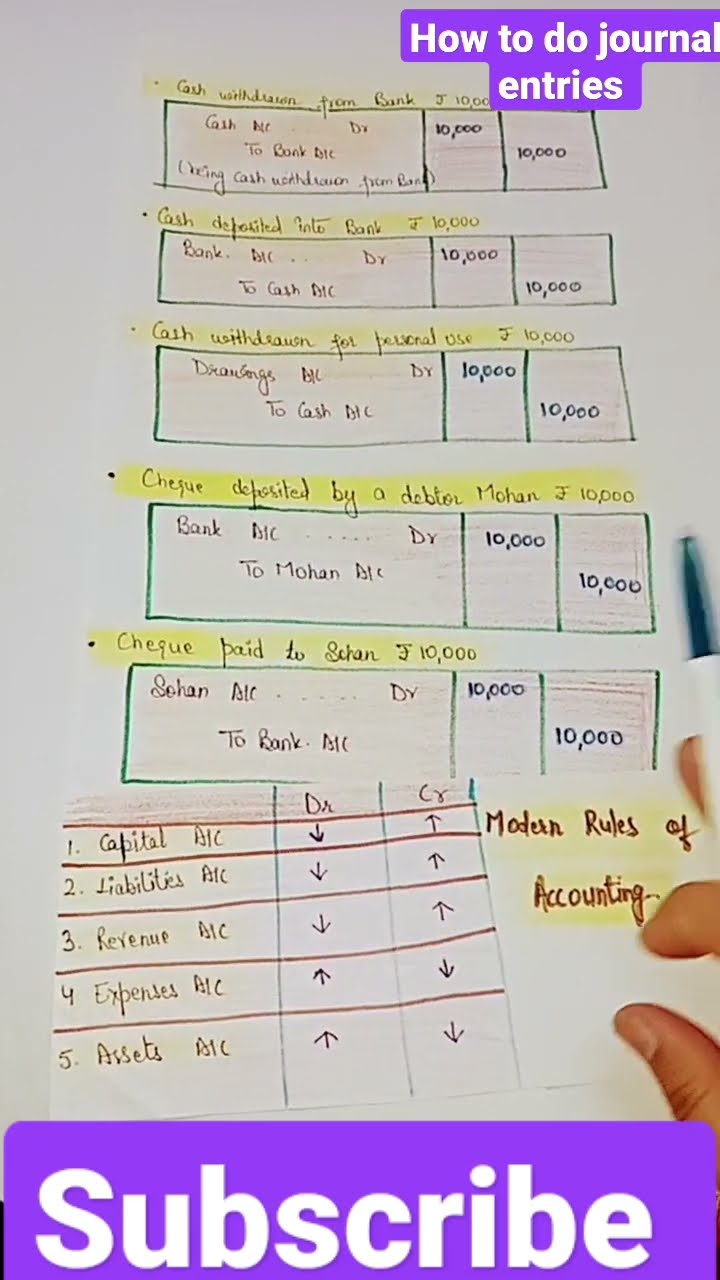 How to do journal
entries
• Cash withdrawn from Bank ₹ 10,00
Cash A/C Dr 10,000
To Bank A/C 10,000
(being cash withdrawn from Bank)
• Cash deposited into Bank ₹ 10,000
Bank. A/C .. Dr 10,000
To Cash A/C 10,000
• Cash withdrawn for personal use ₹ 10,000
Drawings A/C Dr 10,000
To Cash A/C 10,000
• Cheque deposited by a debtor Mohan ₹ 10,000
Bank A/C ..... Dr 10,000
To Mohan A/C 10,000
• Cheque paid to Sohan ₹ 10,000
Sohan A/C ..... Dr 10,000
To Bank. A/C 10,000
Dr Cr
1. Capital A/C ↓ ↑
2. Liabilities A/C ↓ ↑
3. Revenue A/C ↓ ↑
4 Expenses A/C ↑ ↓
5. Assets A/C ↑ ↓
Modern Rules of
Accounting..
Subscribe